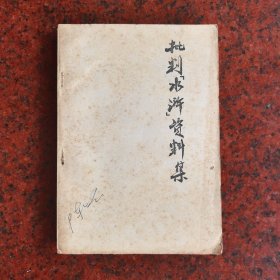 批判《水浒》资料集